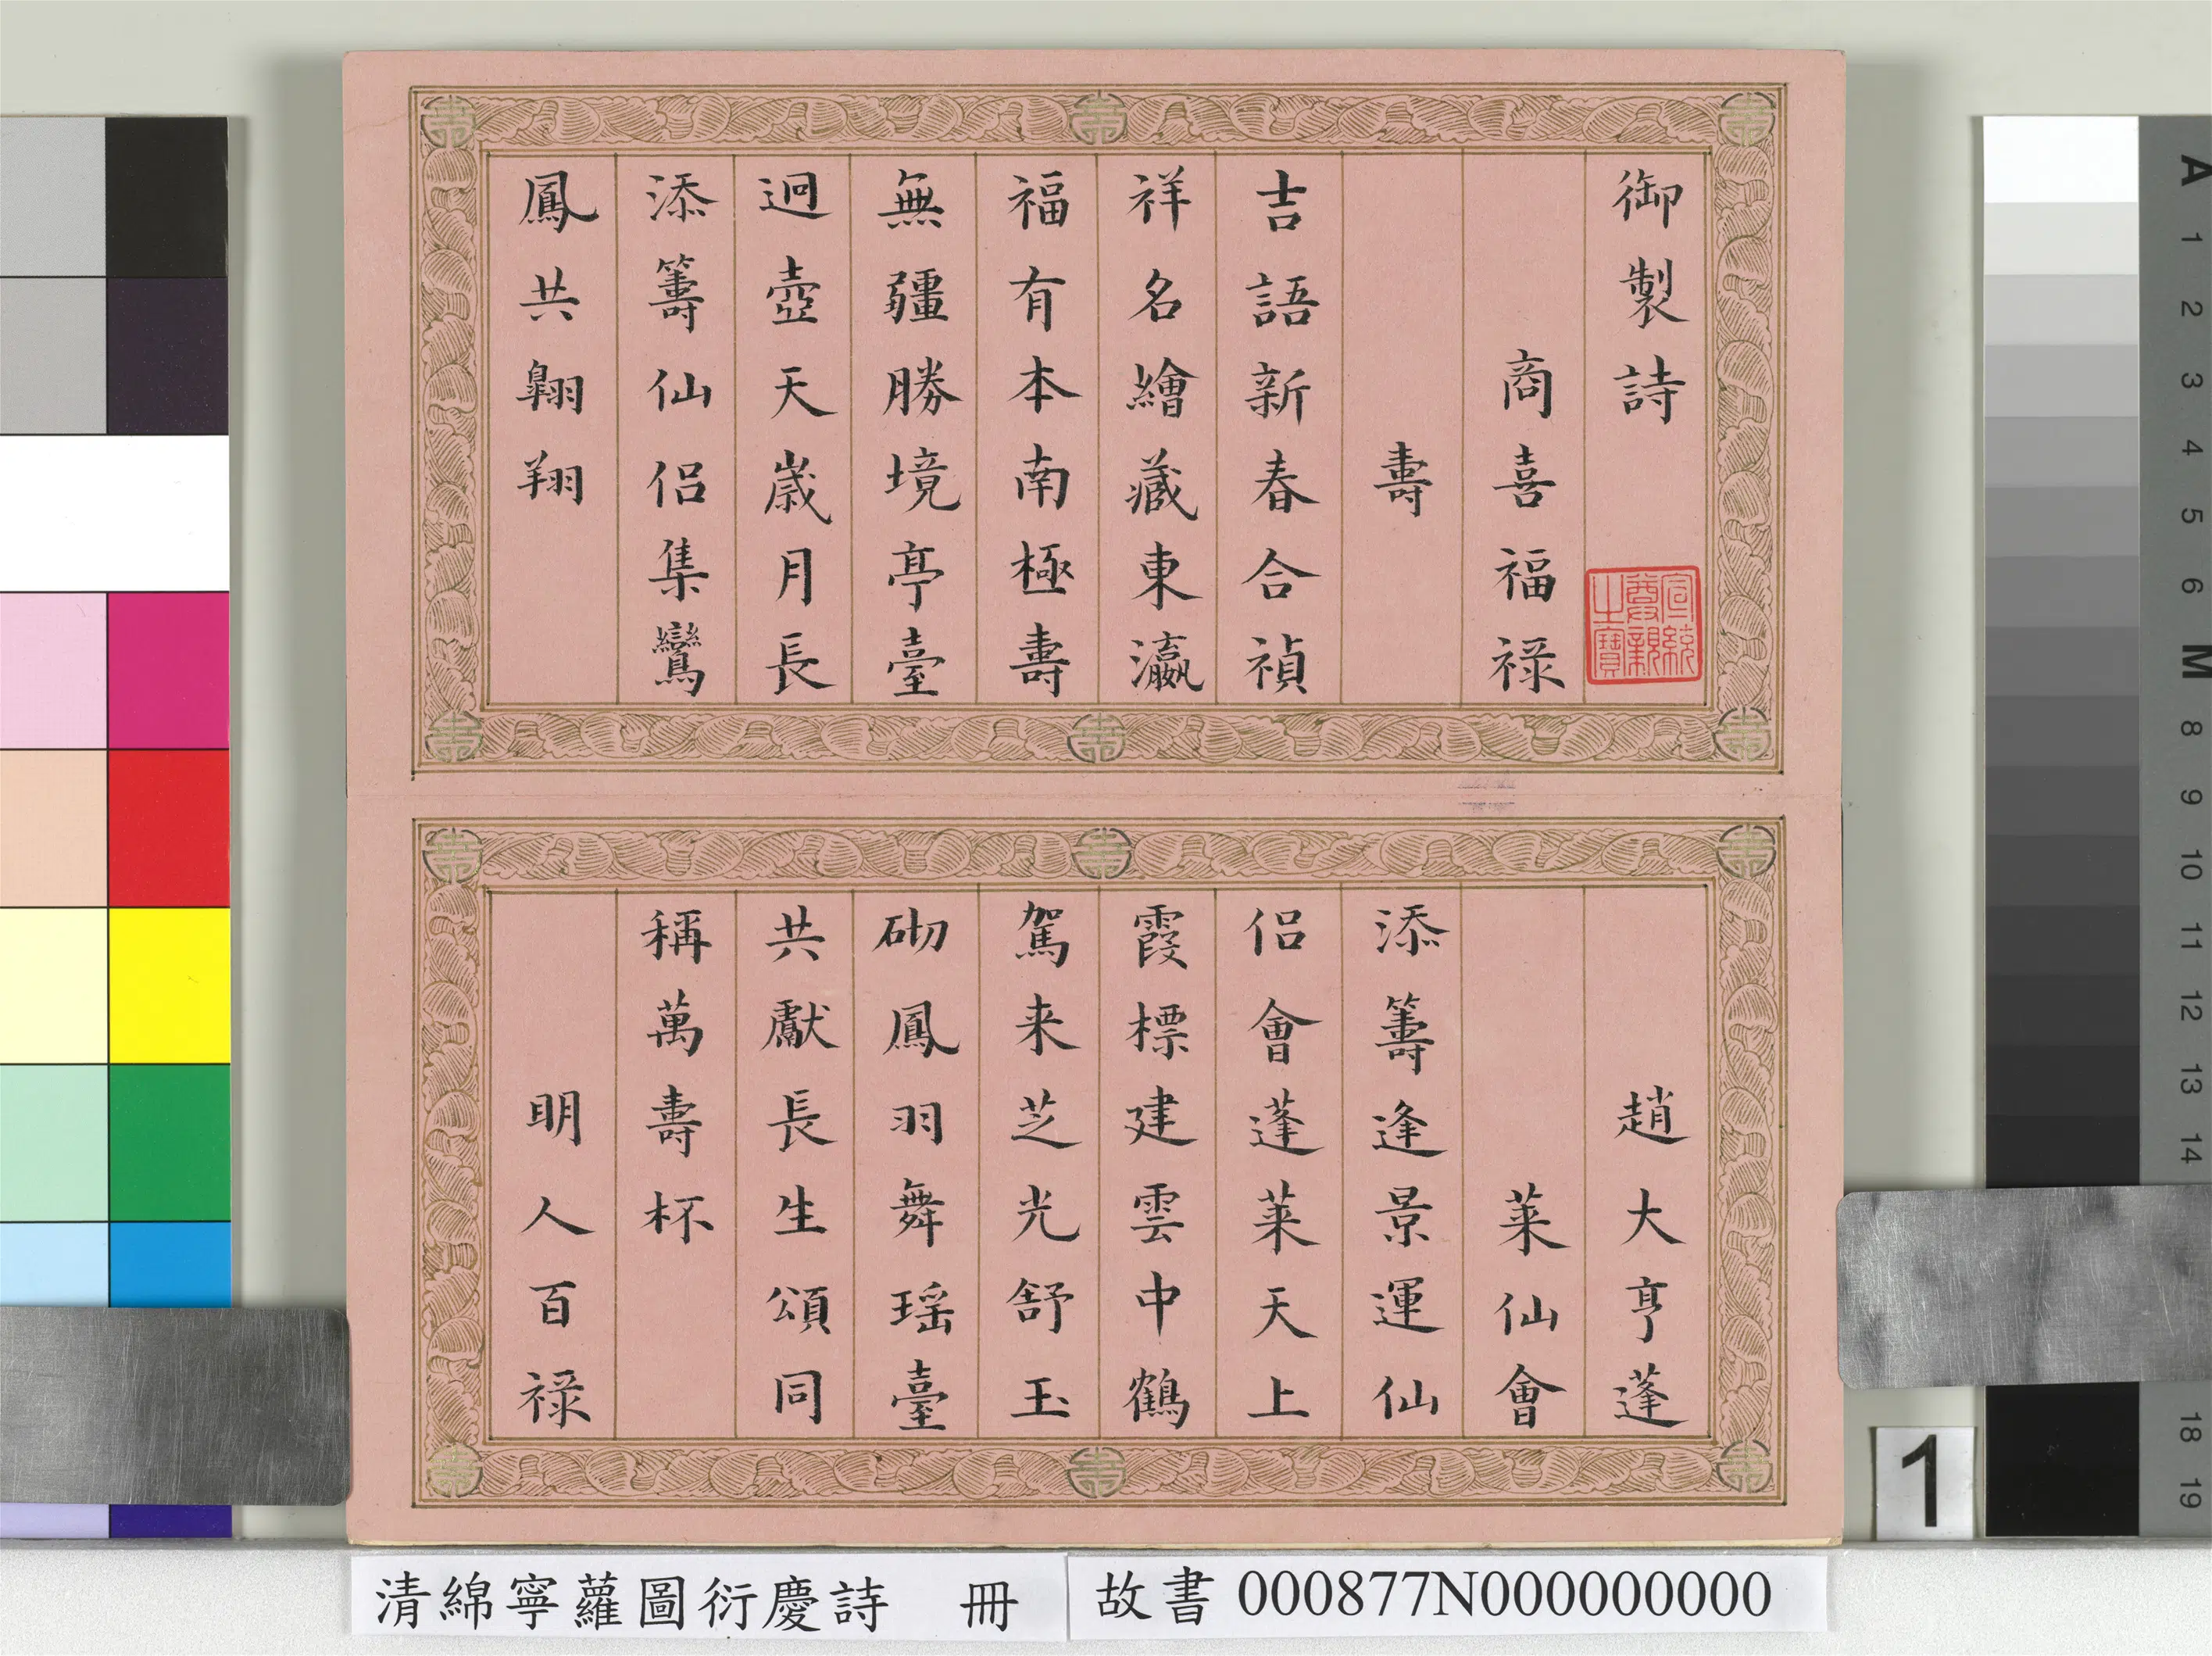 御製詩
商喜福祿
壽
吉語新春合禎
祥名繪藏東瀛
福有本南極壽
無疆勝境亭臺
迥壺天歲月長
添籌仙侶集鸞
鳳共翱翔
宣統尊親之寶
趙大亨蓬
萊仙會
添籌逢景運仙
侶會蓬萊天上
霞標建雲中鶴
駕来芝光舒玉
砌鳳羽舞瑶臺
共獻長生頌同
稱萬壽杯
明人百祿
清綿寧蘿圖衍慶詩 冊
故書 000877N000000000
1
A
1
2
3
4
5
6
M
8
9
10
11
12
13
14
18
19